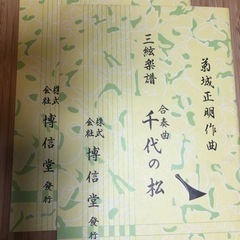 菊城正明作曲
三絃楽譜
合奏曲
千代の松
株式
会社
博信堂
發行
株式
会社
博信堂
發行